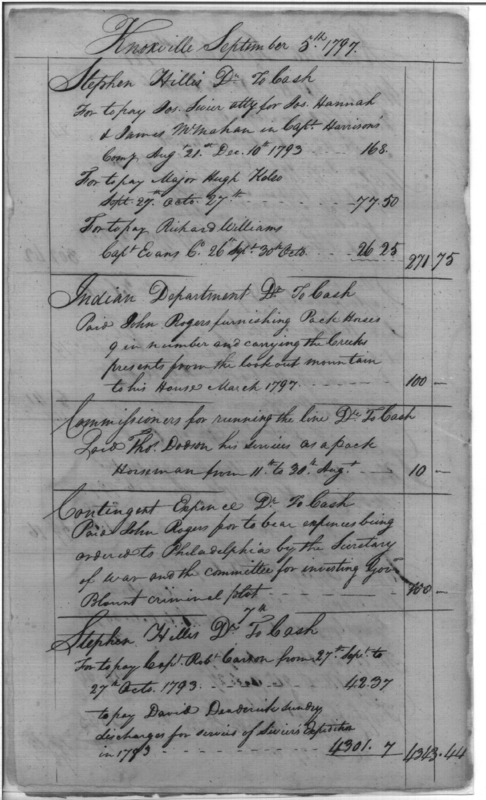 Knoxville September 5th 1797.
Stephen Hillis Dr To Cash
For to pay Jos. Sivier atty for Jos. Hannah
& James McMahan in Capt. Harrison's
Comy. Augt 21st Dec. 10th 1793 168.
For to pay Major Hugh
Sept. 27th Octo. 27th 77.50
For to pay Richard Williams
Capt Evans Co. 26th Sept. 30th Octo. 26 25 271 75
Indian Department Dr To Cash
Paid John Rogers furnishing Pack Horses
9 in number and carrying the Creeks
presents from the lookout mountain
to his House March 1797. 100 —
Commissioners for running the line Dr To Cash
Paid Thos. Dodson his services as a pack
Horseman from 11th to 30th Augt 10 —
Contingent Expence Dr To Cash
Paid John Rogers for to bear expences being
ordered to Philadelphia by the Secretary
of War and the committee for investing Gov
Blount criminal plot 100 —
Stephen Hillis Dr To Cash
For to pay Capt. Robt Carson from 27th Sept. to
27th Octo. 1793. 42.37
to pay David Deaderick Sundry
discharges for servis of Siviers Expedition
in 1793 4301. 7 4343.44